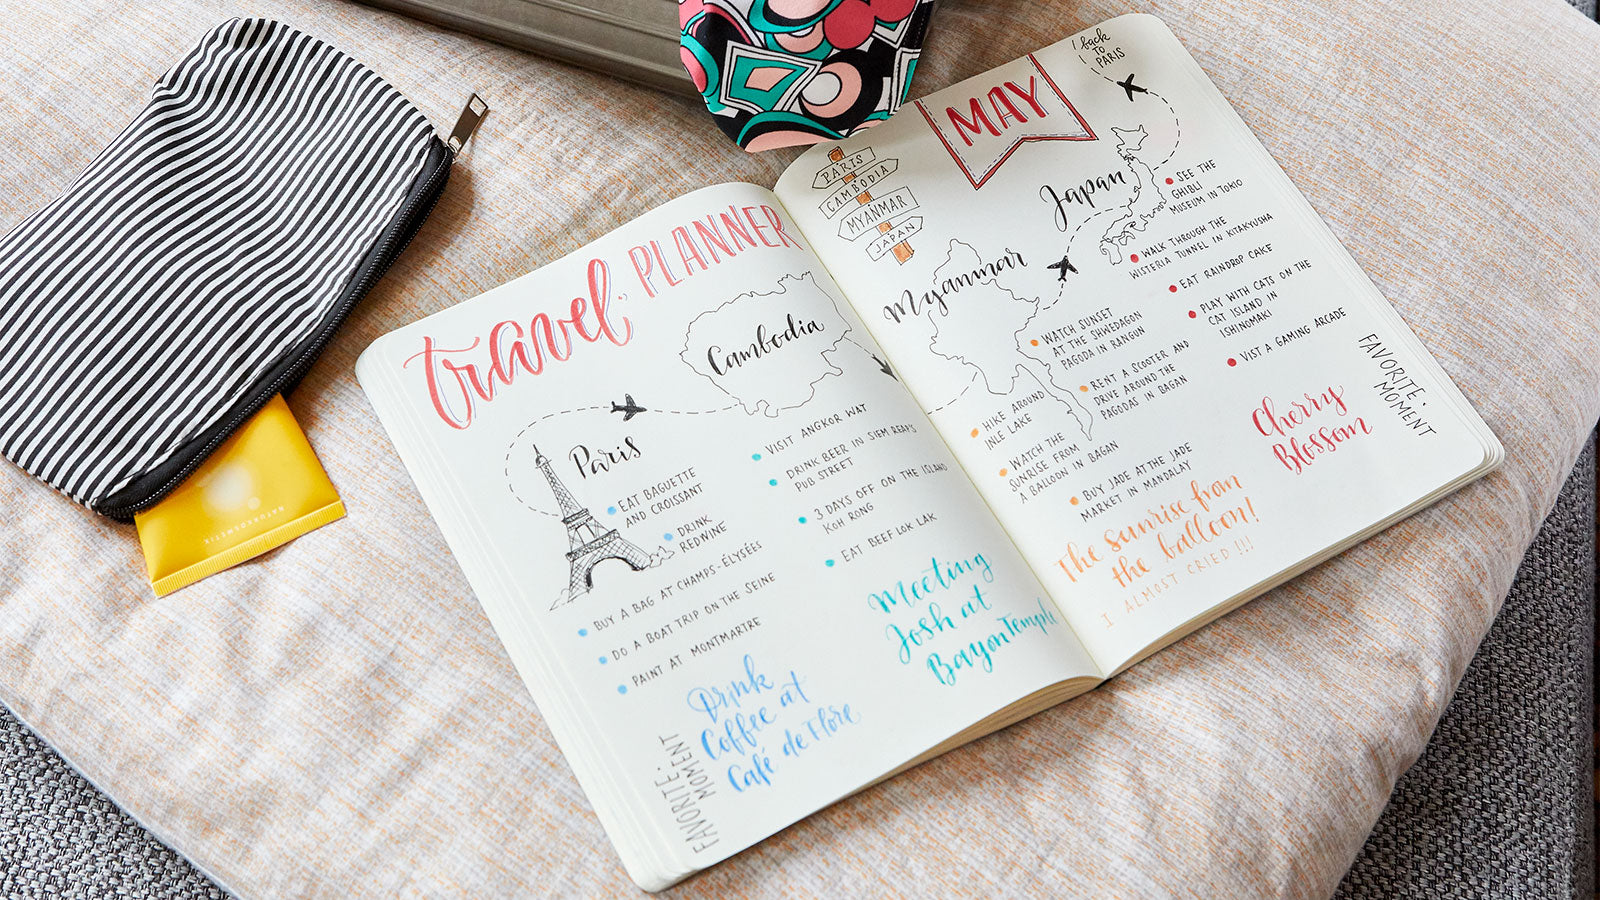 travel PLANNER
Cambodia
Paris
EAT BAGUETTE
AND CROISSANT
DRINK
REDWINE
BUY A BAG AT CHAMPS-ÉLYSÉES
DO A BOAT TRIP ON THE SEINE
PAINT AT MONTMARTRE
FAVORITE
MOMENT
Drink
Coffee at
Café de Flore
VISIT ANGKOR WAT
DRINK BEER IN SIEM REAPS
PUB STREET
3 DAYS OFF ON THE ISLAND
KOH RONG
EAT BEEF LOK LAK
Meeting
Josh at
Bayon Temple
PARIS
CAMBODIA
MYANMAR
JAPAN
MAY
back
TO
PARIS
Myanmar
WATCH SUNSET
AT THE SHWEDAGON
PAGODA IN RANGUN
RENT A SCOOTER AND
DRIVE AROUND THE
PAGODAS IN BAGAN
HIKE AROUND
INLE LAKE
WATCH THE
SUNRISE FROM
A BALLOON IN BAGAN
BUY JADE AT THE JADE
MARKET IN MANDALAY
The sunrise from
the balloon!
I ALMOST CRIED!!!
Japan
SEE THE
GHIBLI
MUSEUM IN TOKIO
WALK THROUGH THE
WISTERIA TUNNEL IN KITAKYUSHA
EAT RAINDROP CAKE
PLAY WITH CATS ON THE
CAT ISLAND IN
ISHINOMAKI
VIST A GAMING ARCADE
Cherry
Blossom
FAVORITE
MOMENT
NATURKOSMETIK